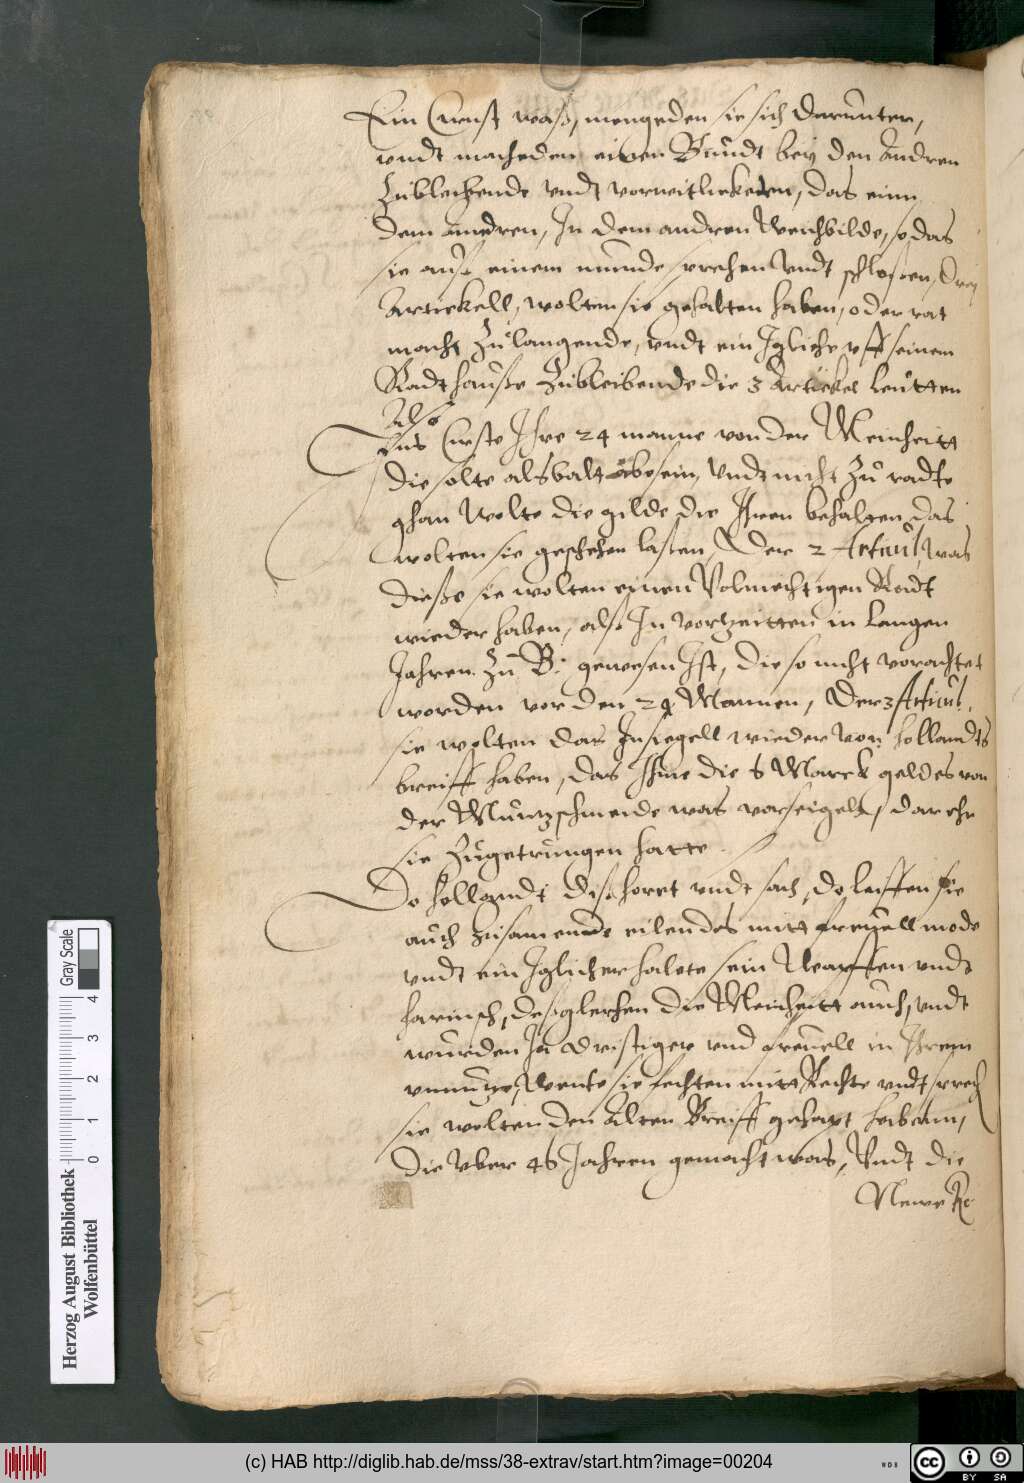 Ein Ernst was, mengeden sie sich darunter,
vndt macheden einen Bundt bey den andren
Zubleibende vndt vorwitlickeden, das einn
dem andren, In dem andren Weichbilde, so das
sie auß einem munde sprechen vndt schloßen, drey
Artickell, wolten sie gehalten haben, oder rat
macht Zulangende, vndt ein Igliche vff seinem
Radthauße Zubleibende die 3 Artickel leutten
Also
Das Erste Ihre 24 manne von der Meinheitt
die solte alsbalt abesein, vndt nicht Zu radte
ghan wolte die gilde die Ihren behalten das
wolten sie geschehen laßen, Der 2 Articul, was
dieße sie wolten einen Volmechtigen Radt
wieder haben, also In vorzeitten in langen
Jahren Zu B: gewesen Ist, die so nicht vorachtet
worden vor den 24 Mannen, Der 3 Articul,
sie wolten das Insiegell wieder von hollandts
breiff haben, das Ihme die 6 Marck geldes von
der Muntzschmiede was vorseigelt, dar ehr
sie Zugetrungen hatte.
Do hollandt diß horet vndt sach, do leiffen sie
auch zusamende eilendes mitt freuell mode
vndt ein Iglicher halete sein Waffen vndt
harnisch, deßgleichen die Meinheitt auch, vndt
wurden In dristiger vnd freuell in Ihrem
vnnutze, Wente sie fechten mitt Rechte vndt sprech
sie wolten den alten Breiff gehapt hebben,
die vber 46 Jahren gemacht was, Vndt die
Newe
Herzog August Bibliothek
Wolfenbüttel
Gray Scale
0 1 2 3 4
(c) HAB http://diglib.hab.de/mss/38-extrav/start.htm?image=00204
WDB
cc BY SA